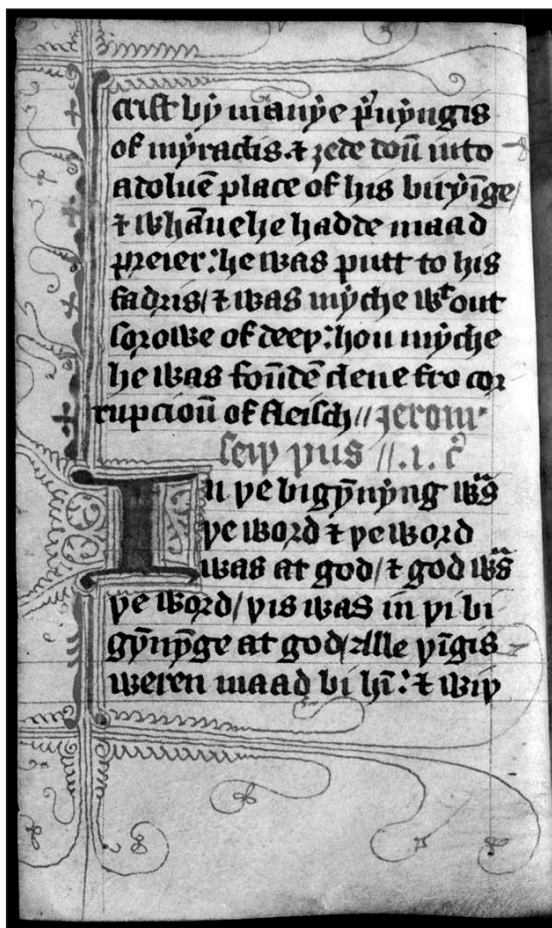 crist by manye pͥuyngis
of myraclis. ⁊ ȝede doū into
a doluē place of his biryīge/
⁊ whāne he hadde maad
preier: he was putt to his
fadris/ ⁊ was myche wᵗout
sorowe of deeþ: hou myche
he was foūdē clene fro cor
rupcioū of fleisch// Jerom
seiþ þus //.i. cͦ
In þe bigȳnyng wᵃs
þe word ⁊ þe word
was at god/ ⁊ god wᵃs
þe word/ þis was in þi bi
gȳnȳge at god/ Alle þīgis
weren maad bi hī: ⁊ wiþ